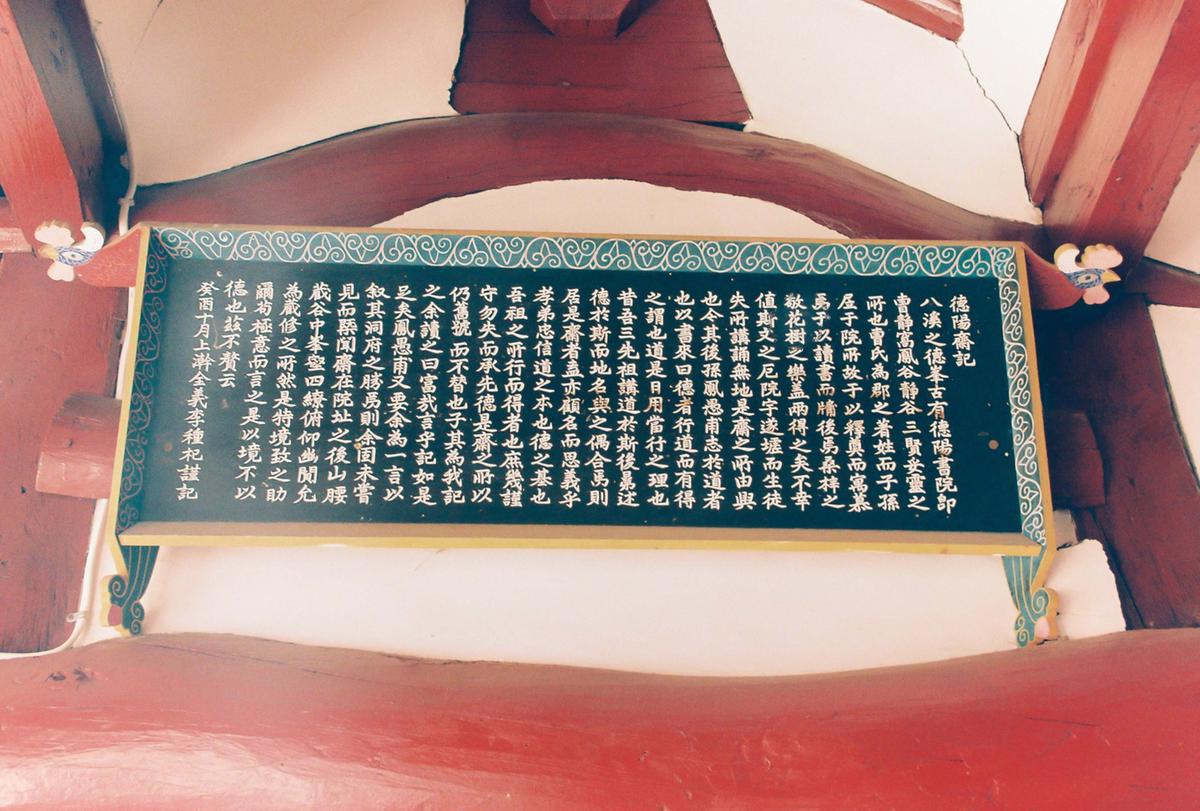 德陽齋記
八溪之德峯古有德陽書院卽
曺靜齋鳳谷靜谷三賢妥靈之
所也曺氏為郡之著姓而子孫
居于院所故于以釋奠而寓慕
焉于以讀書而牖後焉桑梓之
敬花樹之樂盖兩得之矣不幸
值斯文之厄院宇遂墟而生徒
失所講誦無地是齋之所由興
也今其後孫鳳愚甫志於道者
也以書來曰德者行道而有得
之謂也道是日用當行之理也
昔吾三先祖講道於斯後晜述
德於斯而地名與之偶合焉則
居是齋者盖亦顧名而思義乎
孝弟忠信道之本也德之基也
吾祖之所行而得者也庶幾謹
守勿失而承先德是齋之所以
仍舊號而不替也子其為我記
之余讀之曰富哉言乎記如是
足矣鳳愚甫又要余為一言以
叙其洞府之勝焉則余固未嘗
見而槩聞齋在院址之後山腰
藏谷中峯壑四繚俯仰幽閴允
為藏修之所然是特境致之助
爾苟極意而言之是以境不以
德也玆不贅云
癸酉十月上澣全義李種杞謹記